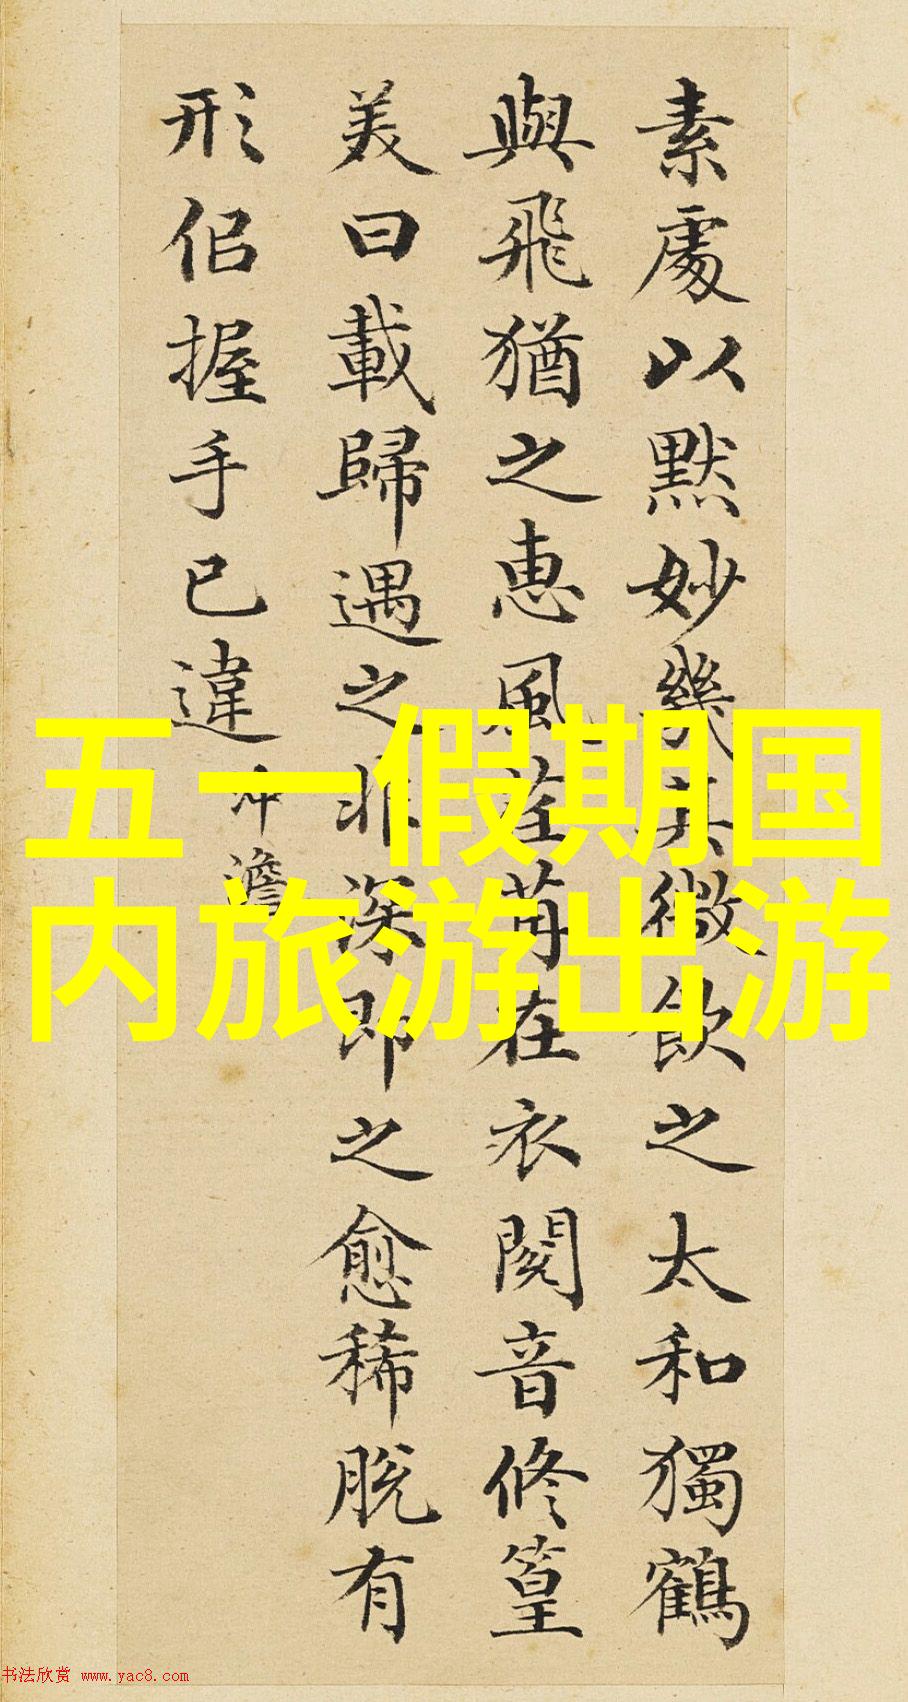 素處以默妙幾其微飲之太和獨鶴
與飛猶之惠風荏苒在衣閱音修篁
美曰載歸遇之非深即之愈稀脫有
形佀握手已違 冲澹
五一假期国
内旅游出游
书法欣赏 www.yac8.com